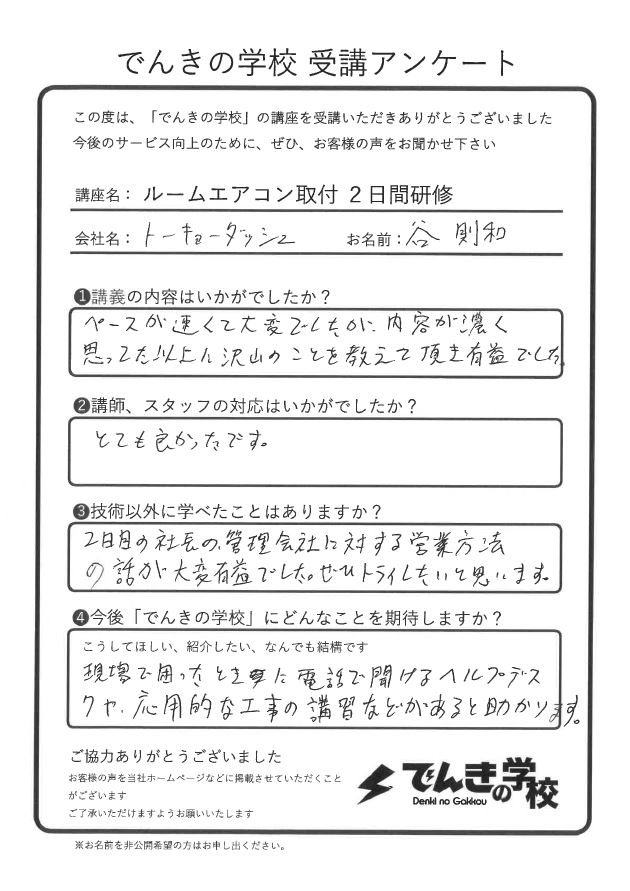 でんきの学校 受講アンケート
この度は、「でんきの学校」の講座を受講いただきありがとうございました
今後のサービス向上のために、ぜひ、お客様の声をお聞かせ下さい
講座名： ルームエアコン取付 2日間研修
会社名： トーキョーダッシュ お名前：谷 則和
❶講義の内容はいかがでしたか？
ペースが速くて大変でしたが、内容が濃く
思ってた以上に沢山のことを教えて頂き有益でした。
❷講師、スタッフの対応はいかがでしたか？
とても良かったです。
❸技術以外に学べたことはありますか？
2日目の社長の、管理会社に対する営業方法
の話が大変有益でした。ぜひトライしたいと思います。
❹今後「でんきの学校」にどんなことを期待しますか？
こうしてほしい、紹介したい、なんでも結構です
現場で困ったとき に電話で聞けるヘルプデス
クや、応用的な工事の講習などがあると助かります。
ご協力ありがとうございました
お客様の声を当社ホームページなどに掲載させていただくこと
がございます
ご了承いただけますようお願いいたします
でんきの学校
Denki no Gakkou
※お名前を非公開希望の方はお申し出ください。